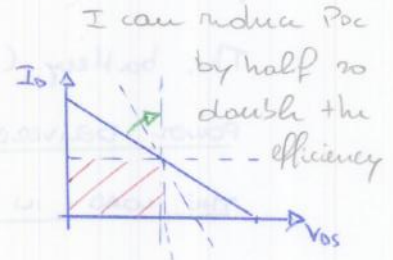 I can reduce PDC
by half so
double the
efficiency
ID
VDS